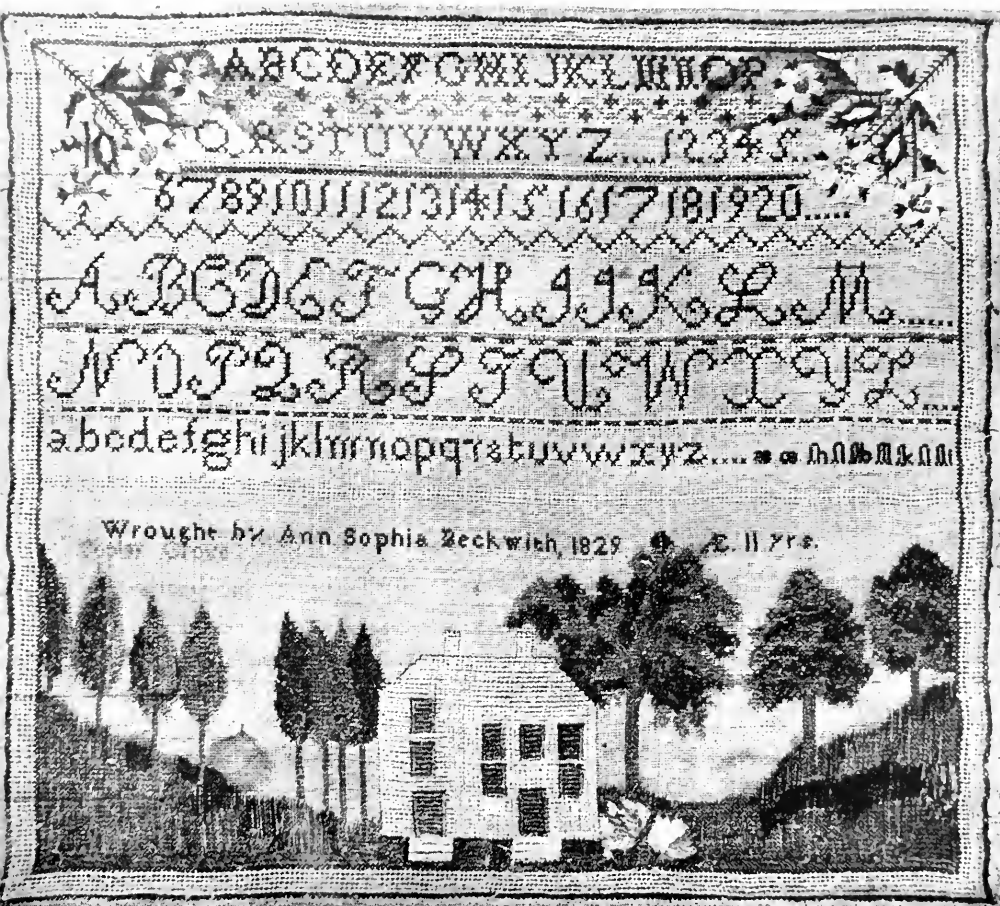 ABCDEFGHIJKLMNOP
QRSTUVWXYZ....12345..
67891011121314151617181920.....
ABCDEFGHIJKLM.....
NOPQRSTUWXYZ....
abcdefghijklmnopqrstuvwxyz.... æ œ
Wrought by Ann Sophia Beckwith, 1829 Æ. 11 yrs.